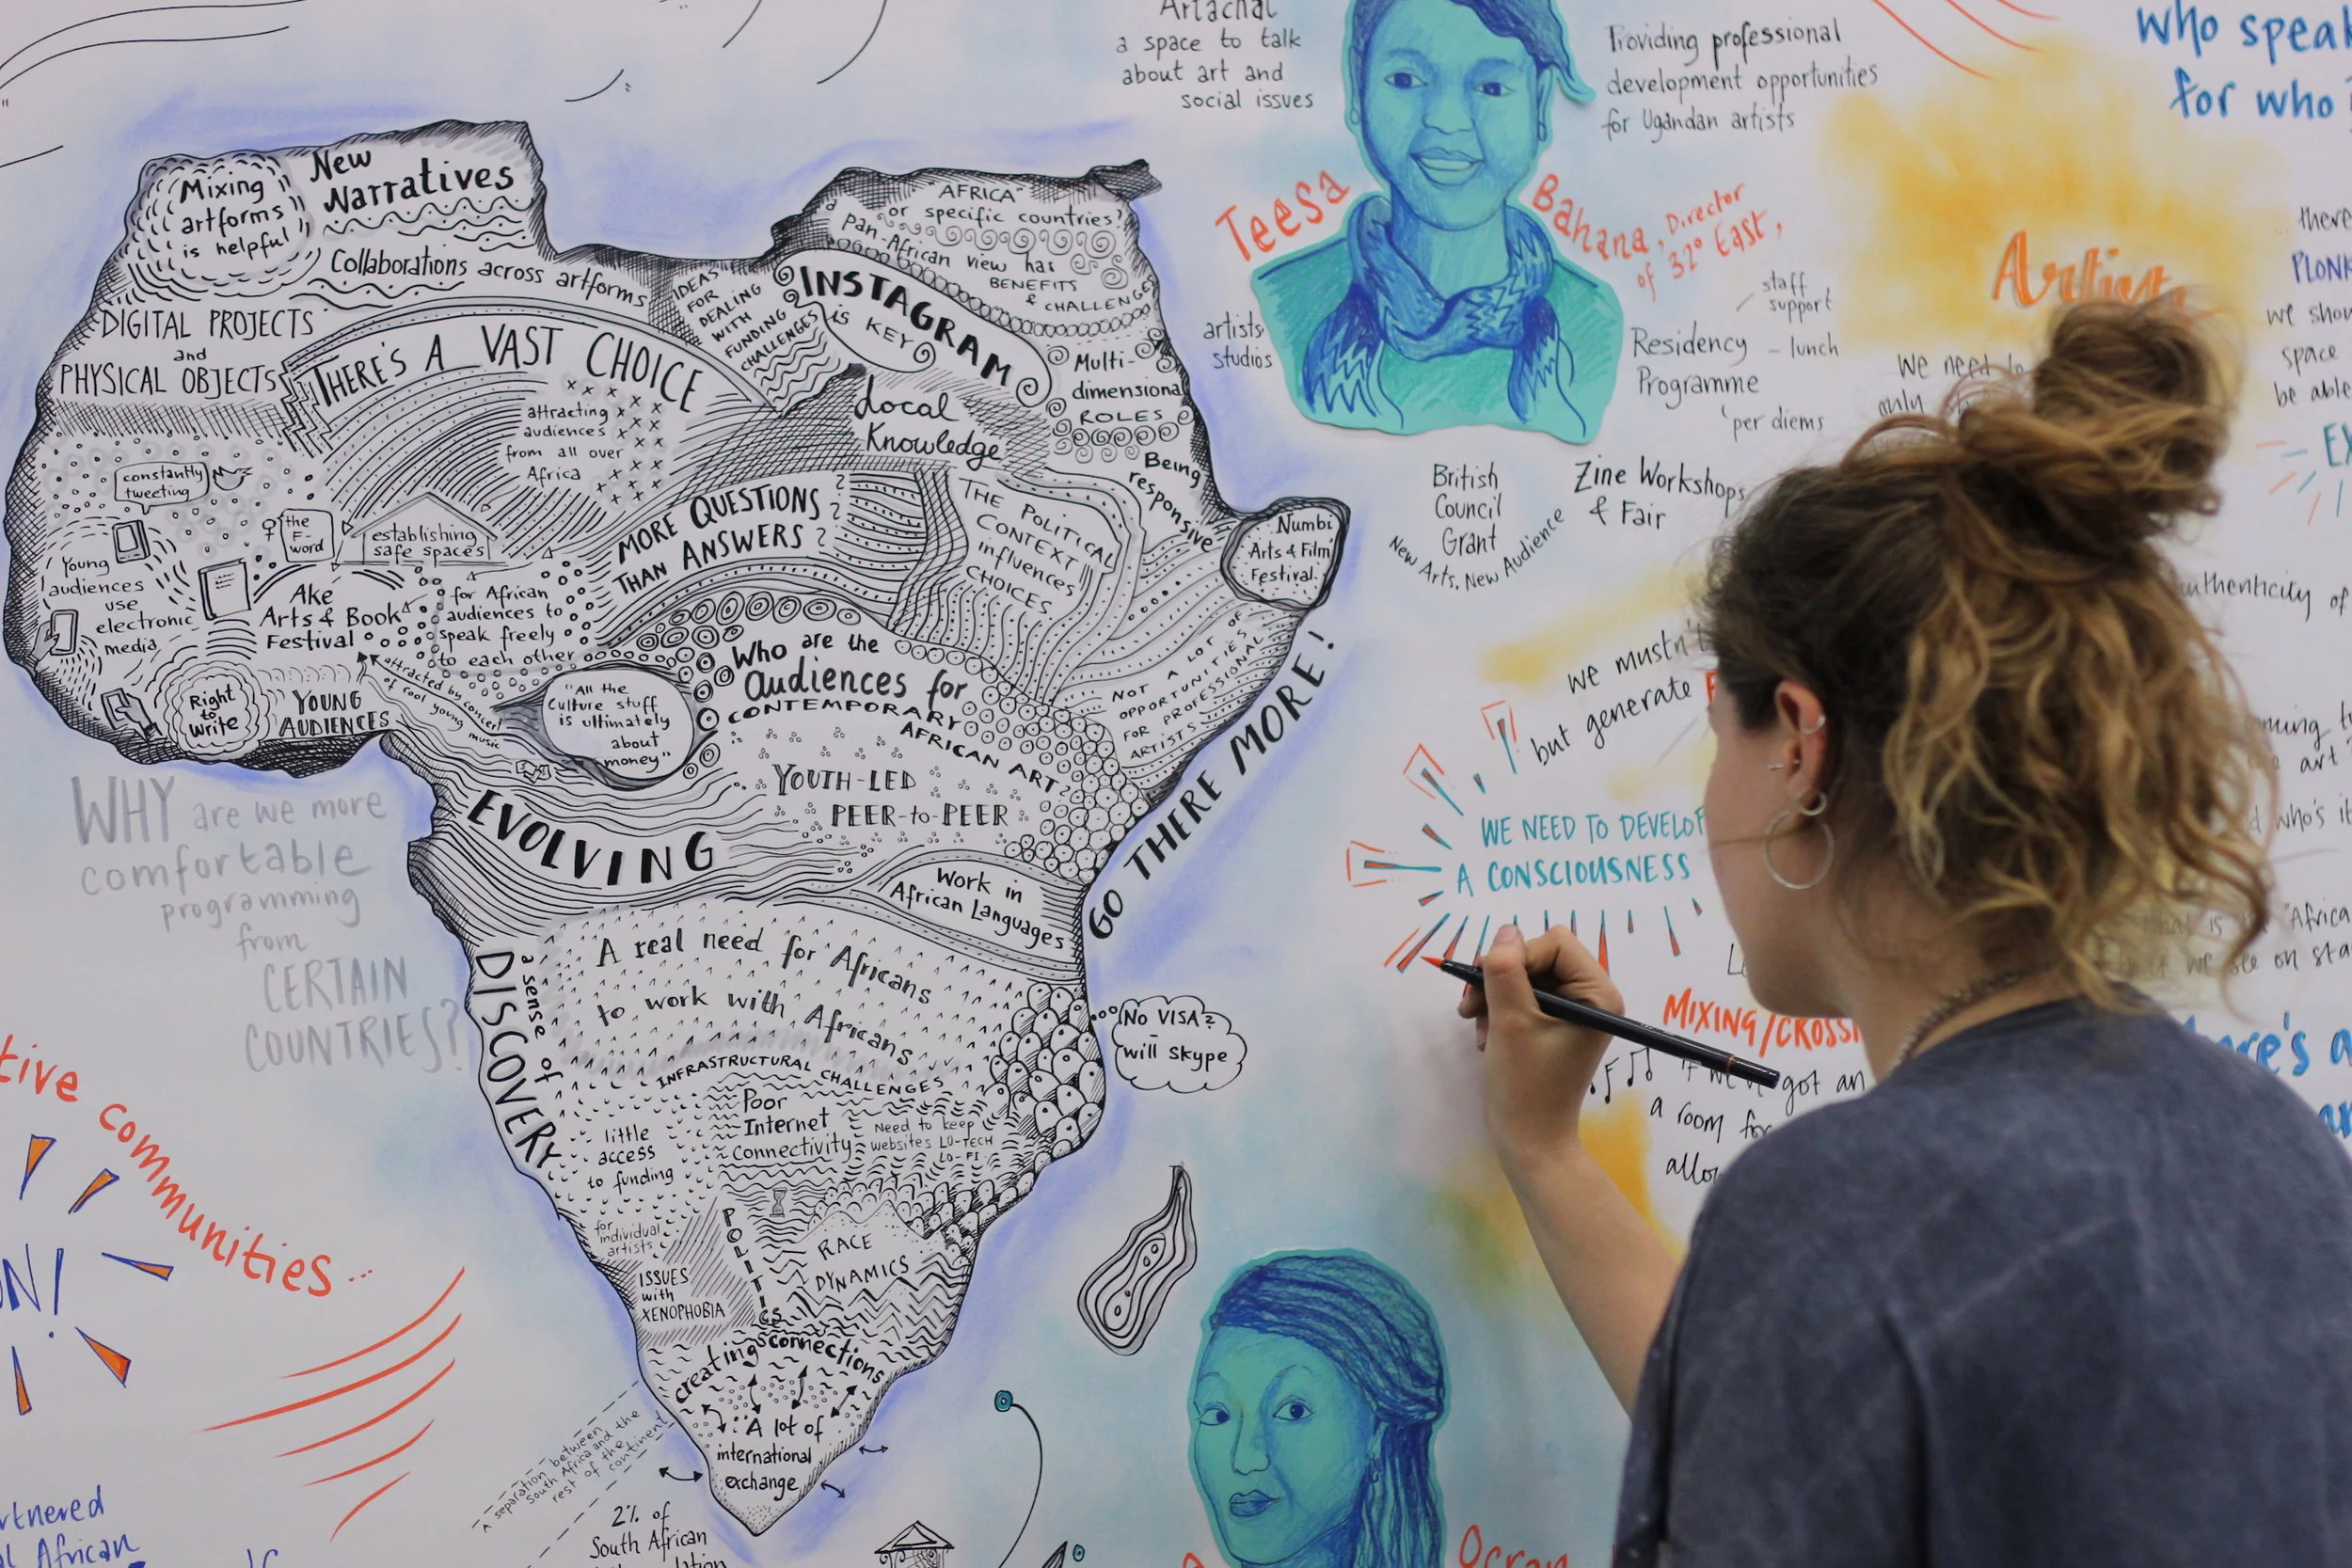 Mixing
artforms
is helpful
New
Narratives
Collaborations across artforms
DIGITAL PROJECTS
and
PHYSICAL OBJECTS
THERE'S A VAST CHOICE
attracting
audiences
from all over
Africa
IDEAS
FOR
DEALING
WITH
FUNDING
CHALLENGES
"AFRICA"
or specific countries?
a pan-African view has
BENEFITS
& CHALLENGES
INSTAGRAM
is KEY
Local
Knowledge
Multi-
dimensional
ROLES
Being
responsive
Numbi
Arts & Film
Festival.
constantly
tweeting
the
F-
word
establishing
safe spaces
for African
audiences to
speak freely
to each other
Young
audiences
use
electronic
media
Ake
Arts & Book
Festival
Right
to
Write
YOUNG
AUDIENCES
attracted by concert
of cool young music
MORE QUESTIONS
THAN ANSWERS?
THE POLITICAL
CONTEXT
influences
CHOICES
NOT A LOT OF
OPPORTUNITIES
FOR PROFESSIONAL
ARTISTS
GO THERE MORE!
"All the
Culture stuff
is ultimately
about
money"
Who are the
audiences for
CONTEMPORARY
AFRICAN ART?
YOUTH-LED
PEER-to-PEER
EVOLVING
Work in
African Languages
a sense of
DISCOVERY
A real need for Africans
to work with Africans
No VISA?
will skype
INFRASTRUCTURAL CHALLENGES
Poor
Internet
Connectivity
Need to keep
websites LO-TECH
LO-FI
little
access
to funding
for
individual
artists
ISSUES
with
XENOPHOBIA
POLITICS
RACE
DYNAMICS
creating connections
A lot of
international
exchange
A separation between
South Africa and the
rest of the
continent
2% of
South African
WHY are we more
comfortable
programming
from
CERTAIN
COUNTRIES?
communities...
African
Artachat
a space to talk
about art and
social issues
Providing professional
development opportunities
for Ugandan artists
Teesa
Bahana, Director
of 32° East,
artists
studios
staff
support
Residency - lunch
Programme
per diems
British
Council
Grant
New Arts, New Audience
Zine Workshops
& Fair
who speak
for who
Artists
we need to
only
there
PLONK
we show
space
be able
authenticity of
we mustn't
but generate
WE NEED TO DEVELOP
A CONSCIOUSNESS
art
who's it
"Africa
we see on
MIXING/CROSSI
if we've got an
a room for